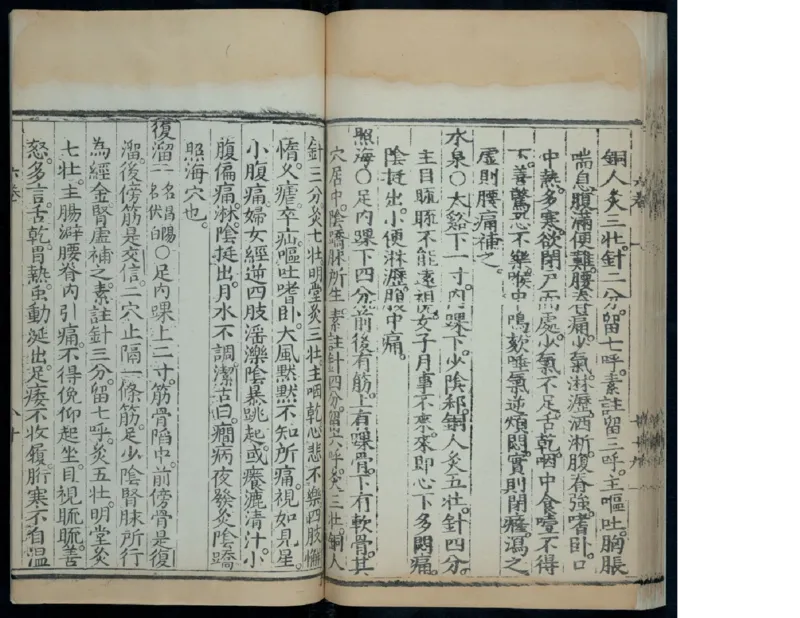 銅人灸三壯針二分留七呼。素註留三呼。主嘔吐胸脹
喘息腹滿便難腰脊痛少氣淋瀝洒淅腹脊強嗜卧口
中熱多寒欲閉户而處少氣不足舌乾咽中食噎不得
下善驚恐不樂喉中鳴欬唾氣逆煩悶實則閉癃瀉之
虛則腰痛補之。
水泉〇太谿下一寸内踝下少陰郄。銅人灸五壯針四分。
主目䀮䀮不能遠視女子月事不來來即心下多悶痛
陰挺出小便淋瀝腹中痛。
照海〇足内踝下四分前後有筋上有踝骨下有軟骨其
穴居中。陰蹻脉所生。素註針四分留六呼灸三壯銅人
針三分灸七壯明堂灸三壯主咽乾心悲不樂四肢懈
惰久瘧卒疝嘔吐嗜卧大風黙黙不知所痛視如見星
小腹痛婦女經逆四肢滛濼陰暴跳起或癢漉清汁小
腹偏痛淋陰挺出月水不調潔古曰癎病夜發灸陰蹻
照海穴也。
復溜一名昌陽一名伏白〇足内踝上二寸筋骨陷中前傍骨是復
溜後傍筋是交信二穴止隔一條筋足少陰腎脉所行
為經金腎虛補之素註針三分留七呼灸五壯明堂灸
七壯主腸澼腰脊内引痛不得俛仰起坐目視䀮䀮善
怒多言舌乾胃熱虫動涎出足痿不收履胻寒不自温
六卷
八十
六卷